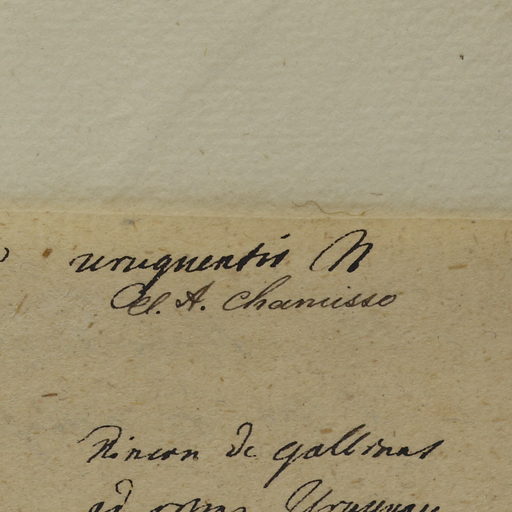 uruguensis N
Cl. A. Chamisso
Rincon de gallinas
ad Uruguay